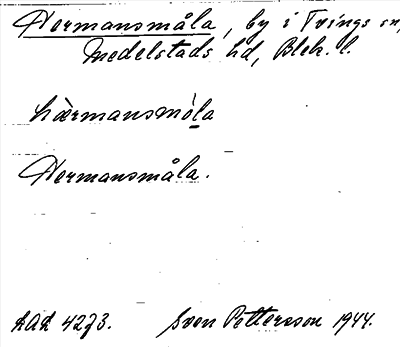 Hermansmåla, by i Tvings sn,
Medelstads hd, Blek. l.
hàrmansmò̀la
Hermansmåla.
LAL 4273.    Sven Pettersson 1944.